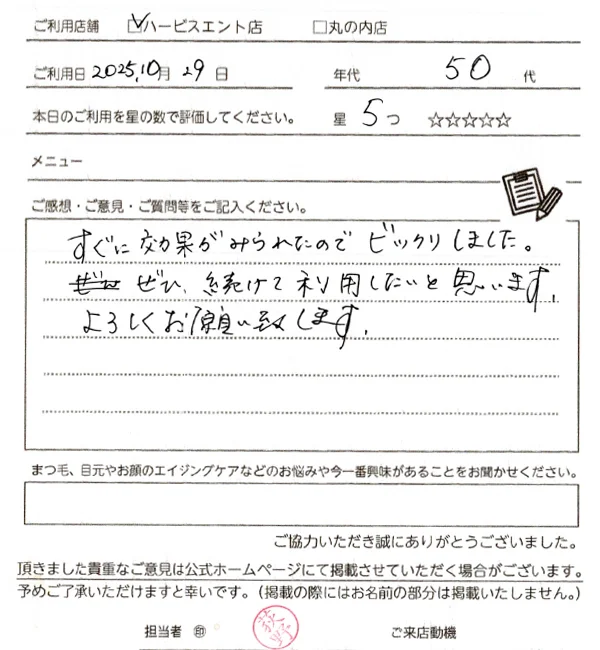 ご利用店舗 ☑ハービスエント店 □丸の内店
ご利用日 2025.10月 29日 年代 50代
本日のご利用を星の数で評価してください。 星 5つ ☆☆☆☆☆
メニュー
ご感想・ご意見・ご質問等をご記入ください。
すぐに効果がみられたので ビックリしました。
ぜひ、続けて利用したいと思います。
よろしくお願い致します。
まつ毛、目元やお顔のエイジングケアなどのお悩みや今一番興味があることをお聞かせください。
ご協力いただき誠にありがとうございました。
頂きました貴重なご意見は公式ホームページにて掲載させていただく場合がございます。
予めご了承いただけますと幸いです。（掲載の際にはお名前の部分は掲載いたしません。）
担当者 ㊞ ご来店動機